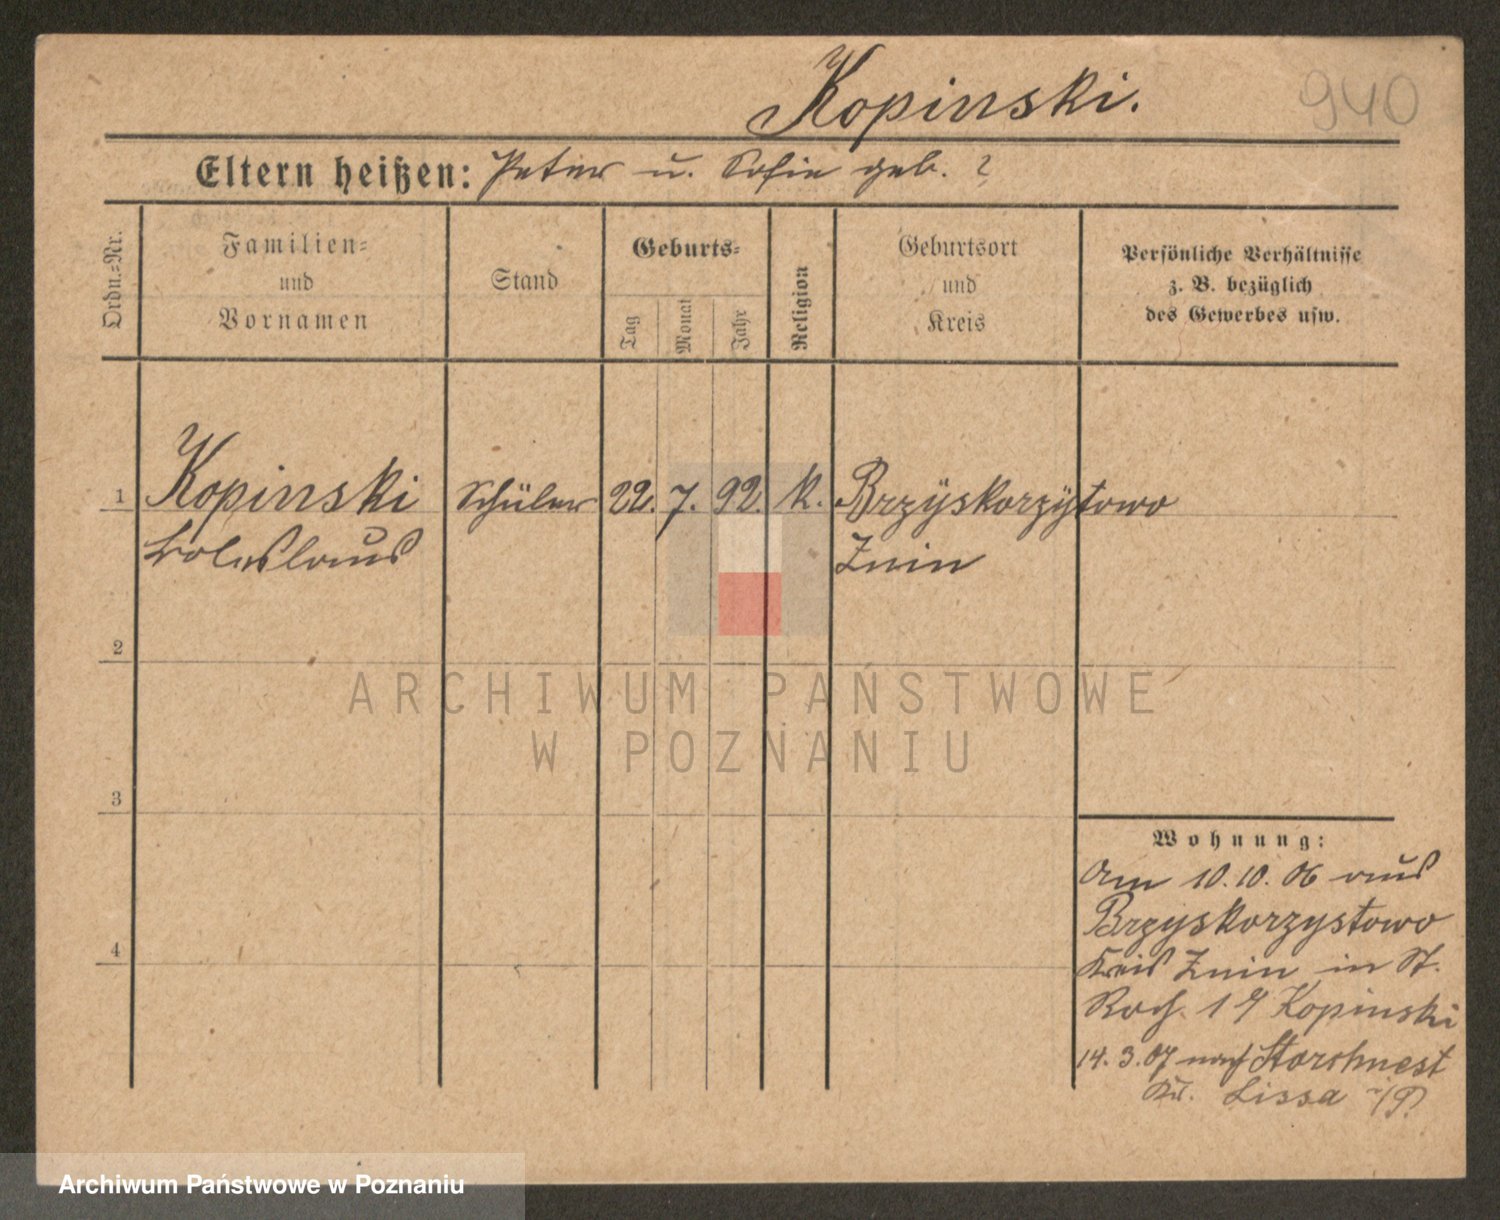 Kopinski.
940
Eltern heißen: Peter u. Sofie geb. ?
Ordn.=Nr.
Familien=
und
Vornamen
Stand
Geburts=
Tag
Monat
Jahr
Religion
Geburtsort
und
Kreis
Persönliche Verhältnisse
z. B. bezüglich
des Gewerbes usw.
1
Kopinski
Schüler
22.
7.
92.
k.
Brzÿskorzÿstowo
Boleslaus
Znin
2
ARCHIWUM PAŃSTWOWE
W POZNANIU
3
Wohnung:
Am 10.10.06 aus
Brzyskorzystowo
4
Kreis Znin in St.
Roch. 17 Kopinski
14.3.07 nach Storchnest
Kr. Lissa i/P.
Archiwum Państwowe w Poznaniu